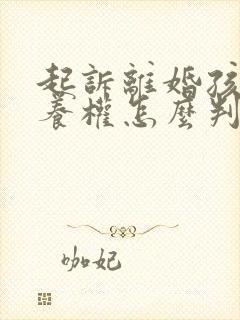 起訴離婚孩
養權怎麼判
咖妃